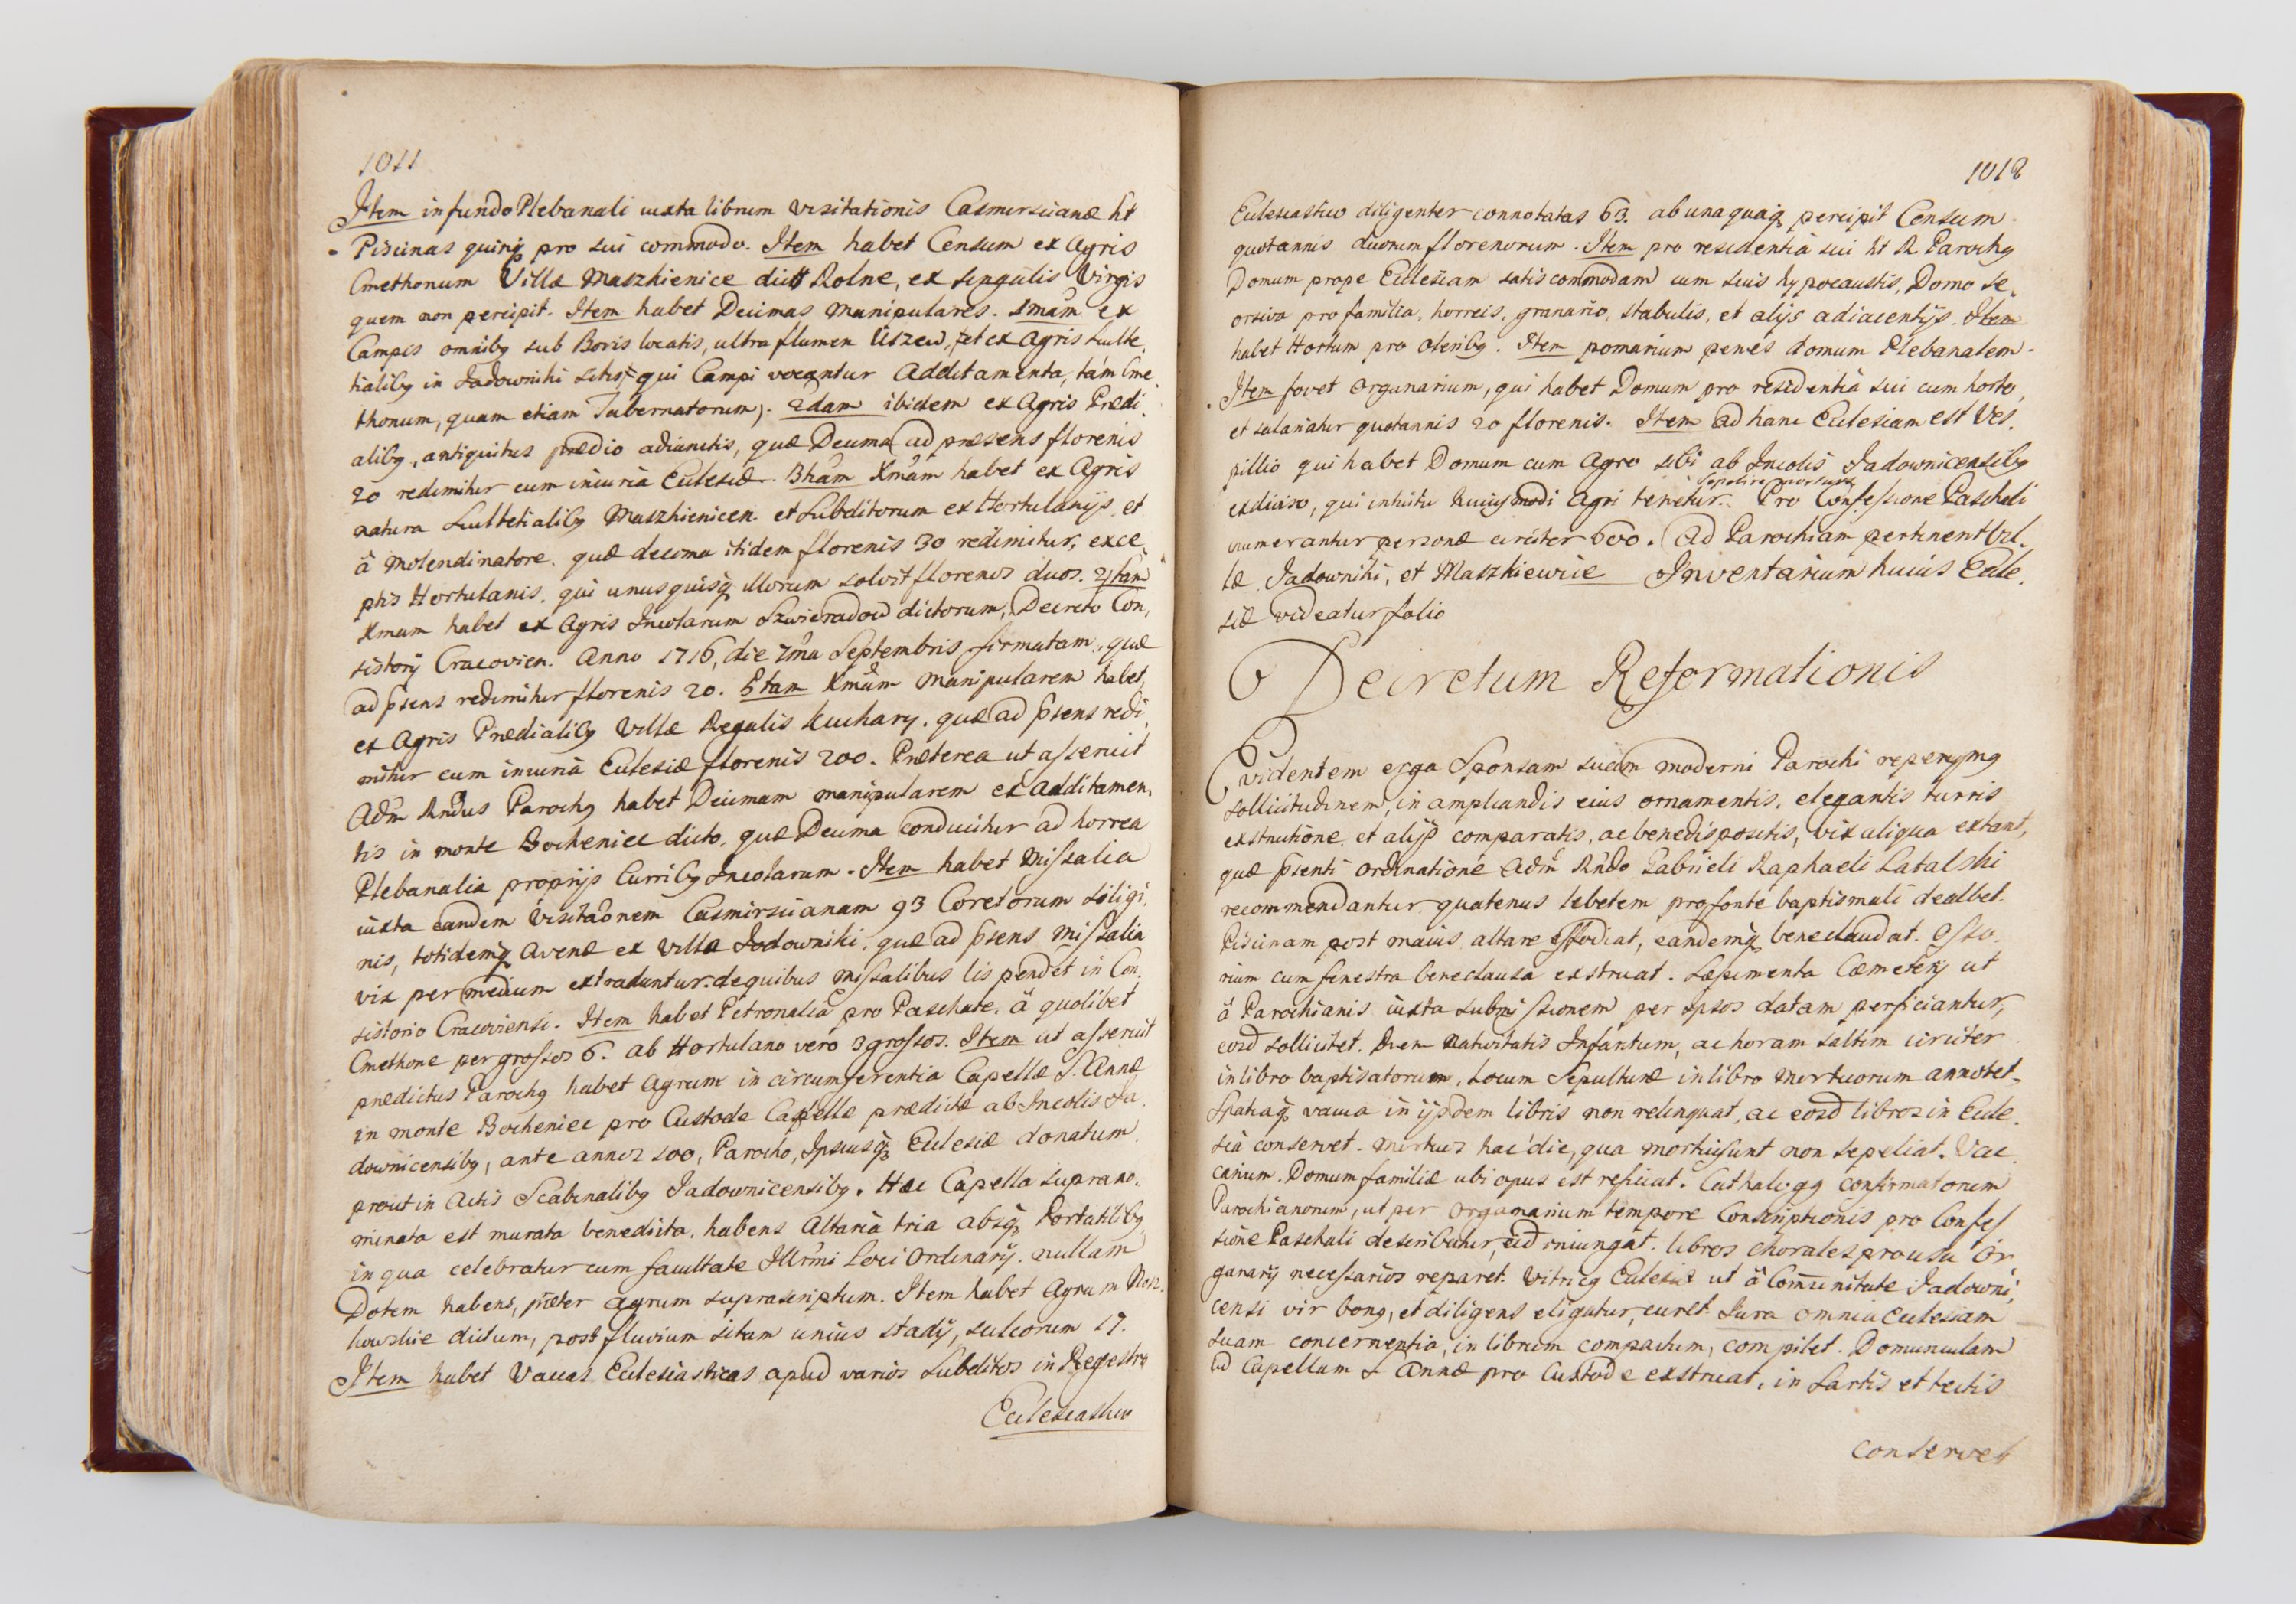 1011
Item in fundo Plebanali iuxta librum visitationis Casmirscianæ ht
Piscinas quinq; pro sui commodo. Item habet Censum ex Agris
Cmethonum Villæ Maszkienice dict Rolne, ex singulis Virgis
quem non percipit. Item habet Decimas Manipulares. 1mam ex
Campis omnibq sub Boris locatis, ultra flumen Uszew, et ex Agris Sculte.
tialibq in Jadowniki sitis, qui Campi vocantur Additamenta, tám Cme.
thonum, quam etiam Tabernatorum,. 2dam ibidem ex Agris Prædi.
alibq, antiquitus prædio adiunctis, quæ Decima ad præsens florenis
20 redimitur cum iniuria Ecclesiæ. 3tiam Xmam habet ex Agris
natura Scultetialibq Maszkienicen. et Subditorum ex Hortulanijs, et
à Molendinatore. quæ decima itidem florenis 30 redimitur, exce.
ptis Hortulanis. qui unusquisq; illorum solvit florenos duos. 4tam
Xmam habet ex Agris Incolarum Szwieradow dictorum, Decreto Con.
sistorij Cracovien. Anno 1716, die 7ma Septembris firmatam, quæ
ad psens redimitur florenis 20. 5tam Xmam Manipularem habet,
ex Agris Prædialibq Villæ Regalis Kuchary. quæ ad psens redi.
mitur cum iniuria Ecclesiæ florenis 200. Præterea ut asseruit
Adm Rndus Parochq habet Decimam manipularem ex Additamen.
tis in monte Bocheniec dicto, quæ Decima conducitur ad horrea
Plebanalia proprijs Curribq Incolarum. Item habet Missalia
iuxta eandem Visitaonem Casmirscianam 93 Coretorum Siligi.
nis, totidemq; Avenæ ex Villa Jadowniki, quæ ad psens Missalia
vix per medium extraduntur. de quibus missalibus lis pendet in Con.
sistorio Cracoviensi. Item habet Petronalia pro Paschate. à quolibet
Cmethone per grossos 6. ab Hortulano vero 3 grossos. Item ut asseruit
prædictus Parochq habet agrum in circumferentia Capellæ S. Annæ
in monte Bocheniec pro Custode Capellæ prædictæ ab Incolis Ja.
downicensibq, ante annos 100, Parocho, Ipsiusq; Ecclesiæ donatum
prout in Actis Scabinalibq Jadownicensibq. Hæc Capella supra no.
minata est murata benedicta. habens Altaria tria absq; Portatilibq,
in qua celebratur cum facultate Illrmi Loci Ordinarij. nullam
Dotem habens, præter agrum suprascriptum. Item habet Agrum
dictum, post fluvium situm unius stadij, sulcorum 17.
Item habet Vaccas Ecclesiasticas apud varios Subditos in Regestro
Ecclesiastico
1012
Ecclesiastico diligenter connotatas 63. ab unaquaq; percipit Censum
quotannis duorum florenorum. Item pro residentia sui ht R Parochq
Domum prope Ecclesiam satis commodam cum suis hypocaustis, Domo se.
orsiva pro familia, horreis, granario, stabulis, et alijs adiacentijs. Item
habet Hortum pro oleribq. Item pomarium penes domum Plebanalem.
Item fovet Organarium, qui habet Domum pro residentia sui cum horto,
et salariatur quotannis 20 florenis. Item ad hanc Ecclesiam est Ves.
pillio qui habet Domum cum Agro sibi ab Incolis Jadownicensibq
sepelire mortuos
exdiviso, qui intuitu huiusmodi agri tenetur. Pro Confessione Paschali
numerantur personæ circiter 600. Ad Parochiam pertinent Vil.
læ Jadowniki, et Maszkiewice Inventarium huius Eccle.
siæ videatur folio
Decretum Reformationis
Evidentem erga Sponsam suam moderni Parochi reperimq
sollicitudinem, in ampliandis eius ornamentis, elegantis turris
exstructione, et alijs comparatis, ac bene dispositis, vix aliqua extant,
quæ psenti ordinatione Adm Rndo Gabrieli Raphaeli Latalski
recommendantur quatenus lebetem pro fonte baptismali dealbet.
Piscinam post maius altare effodiat, eandemq; bene claudat. Osso.
rium cum fenestra bene clausa exstruat. Sæpimenta Cæmeterij ut
à Parochianis iuxta submissionem per ipsos datam perficiantur,
eosd sollicitet. Diem nativitatis Infantum, ac horam saltim circiter
in libro baptisatorum, locum Sepulturæ in libro Mortuorum annotet.
Spatiaq; vacua in ijsdem libris non relinquat, ac eosd libros in Eccle.
sia conservet. Mortuos hac die, qua mortui sunt non sepeliat. Vac.
carium. Domum familiæ ubi opus est reficiat. Cathalogq confirmatorum
Parochianorum, ut per Organarium tempore Conscriptionis pro Confes
sione Paschali describatur, eid iniungat. libros chorales pro usu Or
ganarij necessarios reparet. Vitricq Ecclesiæ ut à Communitate Jadowni.
censi vir bonq, et diligens eligatur, curet. Iura omnia Ecclesiam
suam concernentia, in librum compactum, compilet. Domunculam
ad Capellam S Annæ pro Custode exstruat, in Sartis et tectis
conservet